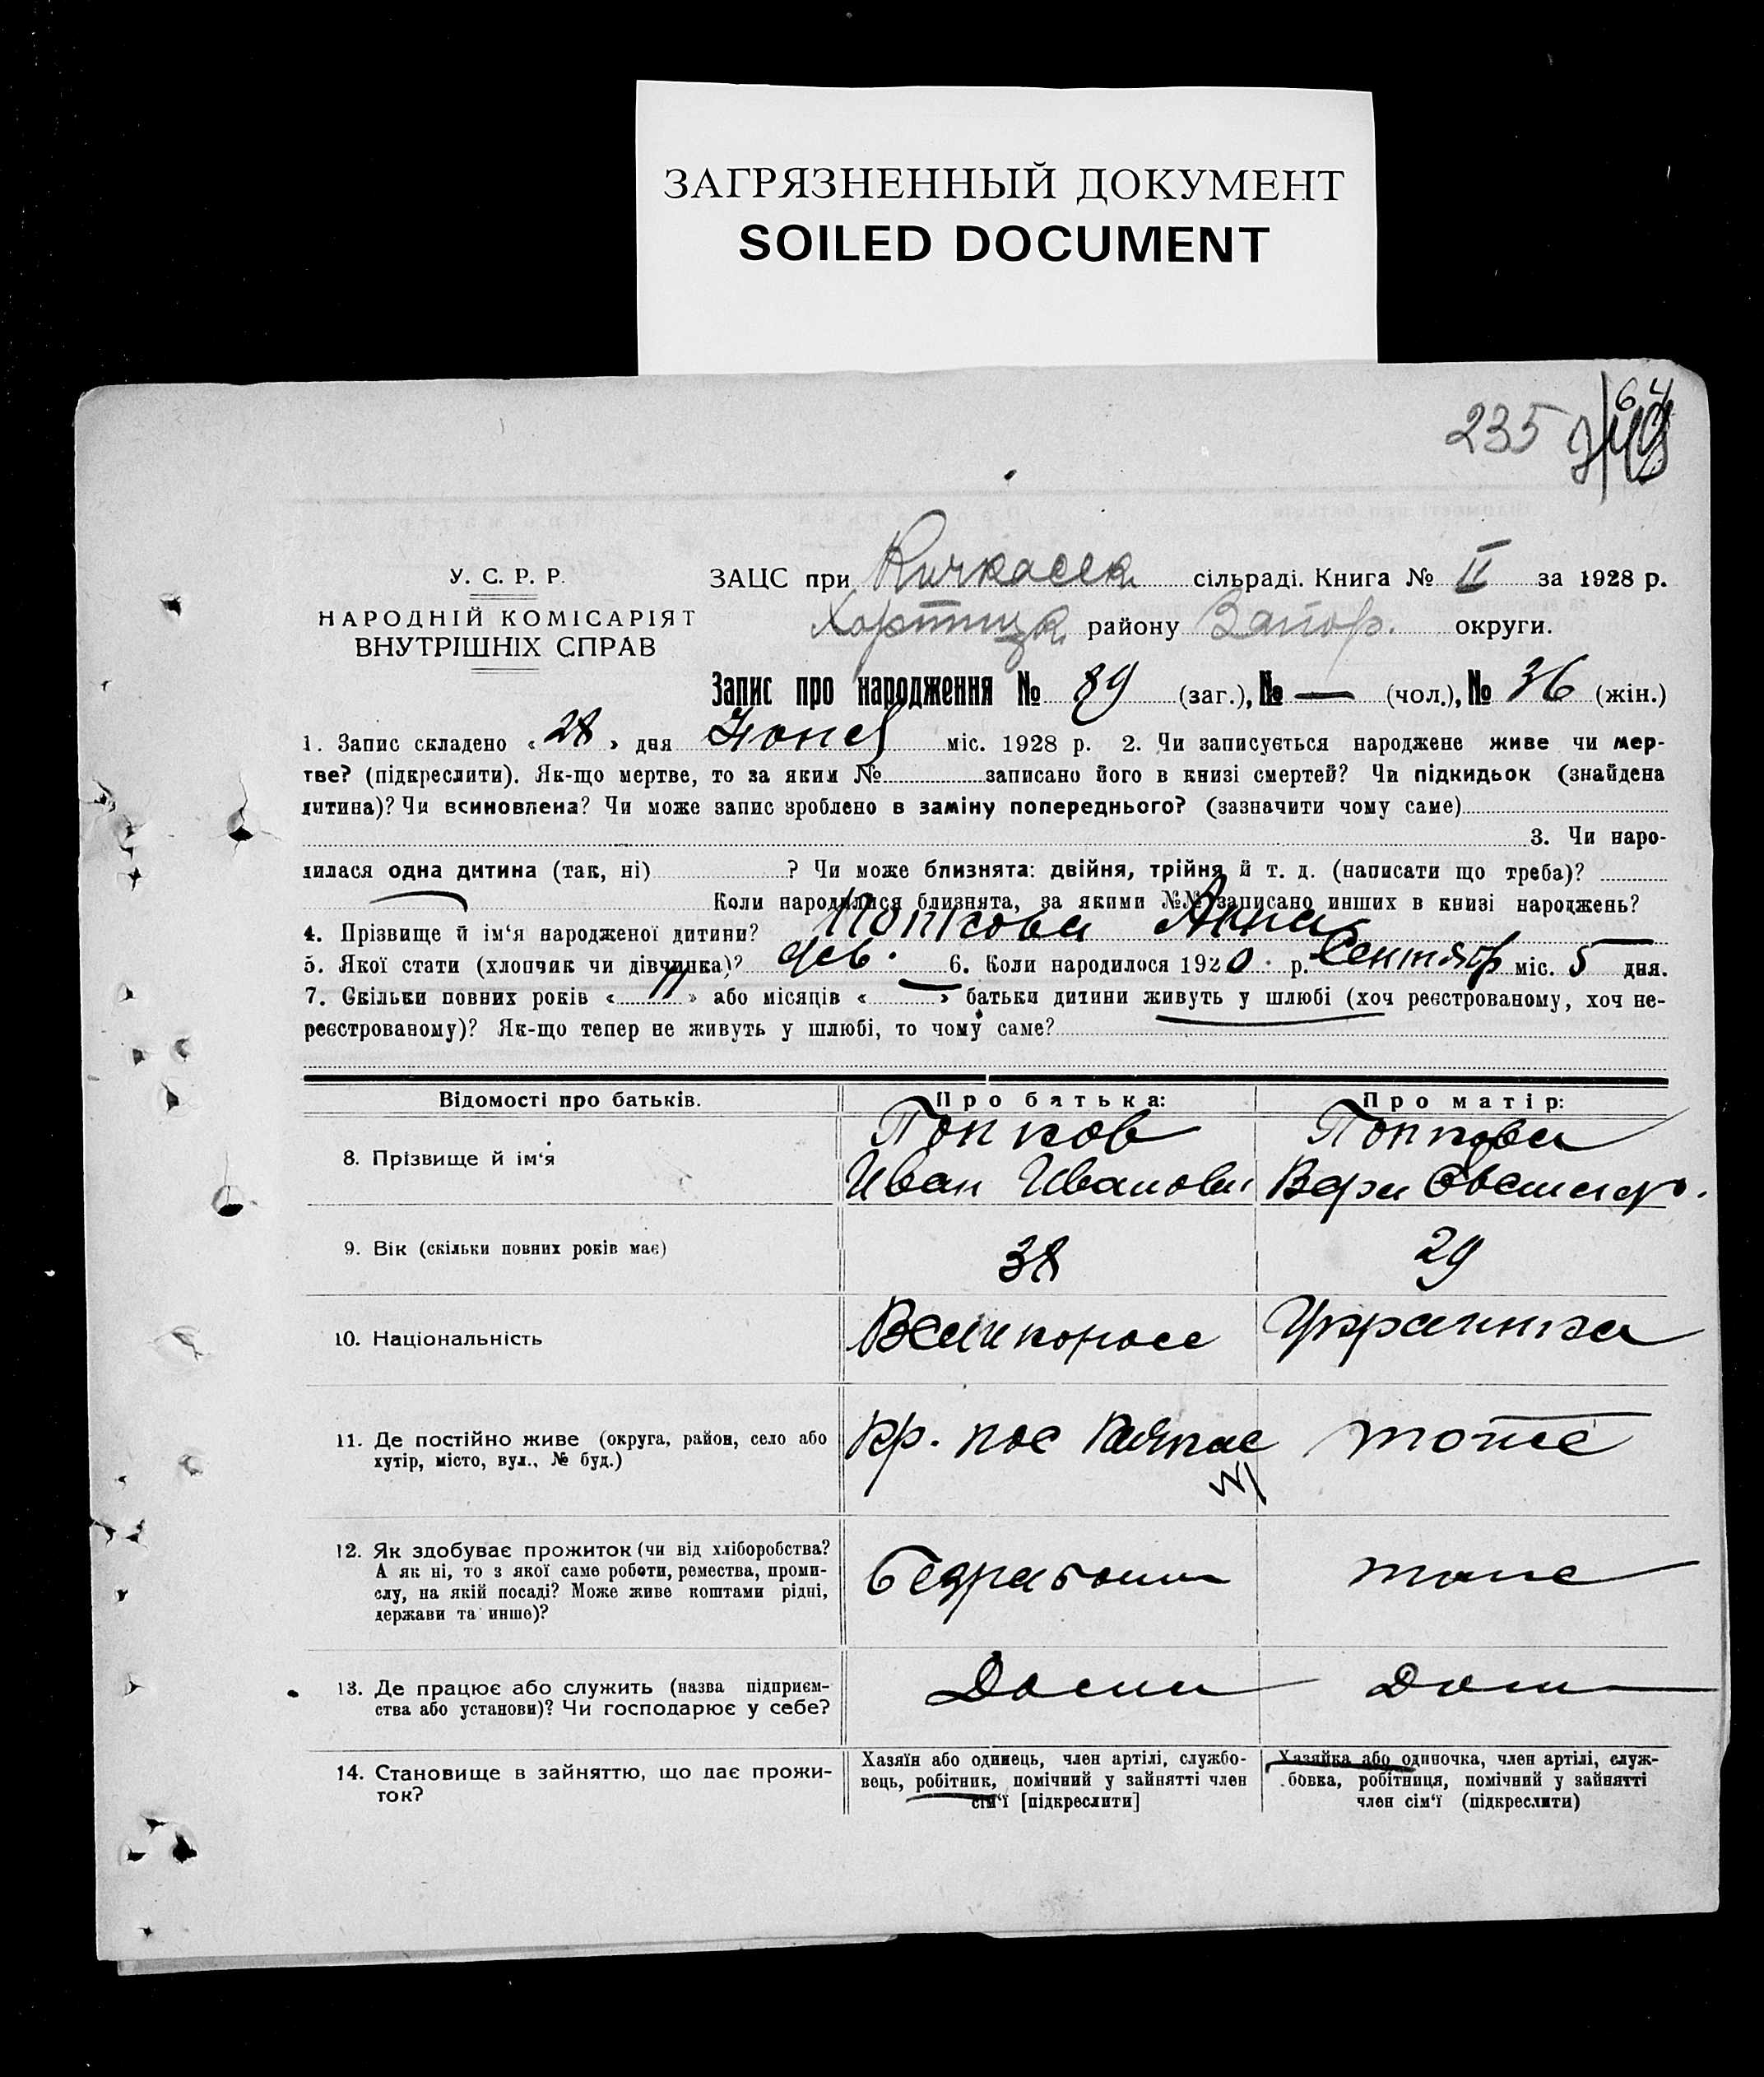 ЗАГРЯЗНЕННЫЙ ДОКУМЕНТ
SOILED DOCUMENT
235
64
У. С. Р. Р.
НАРОДНІЙ КОМІСАРІЯТ
ВНУТРІШНІХ СПРАВ
ЗАЦС при Кичкасск сільраді. Книга № II за 1928 р.
Хортицк району Запор. округи.
Запис про народження № 89 (заг.), № — (чол.), № 36 (жін.)
1. Запис складено «28» дня Июня міс. 1928 р. 2. Чи записується народжене живе чи мер-
тве? (підкреслити). Як-що мертве, то за яким № записано його в книзі смертей? Чи підкидьок (знайдена
дитина)? Чи всиновлена? Чи може запис зроблено в заміну попереднього? (зазначити чому саме)
3. Чи наро-
дилася одна дитина (так, ні) ? Чи може близнята: двійня, трійня й т. д. (написати що треба)?
Коли народилися близнята, за якими №№ записано инших в книзі народжень?
4. Прізвище й ім‘я народженої дитини? Попкова Анна
5. Якої стати (хлопчик чи дівчинка)? дев. 6. Коли народилося 1920 р. Сентябр міс. 5 дня.
7. Скільки повних років « 11 » або місяців « — » батьки дитини живуть у шлюбі (хоч реєстрованому, хоч не-
реєстрованому)? Як-що тепер не живуть у шлюбі, то чому саме?
Відомості про батьків. Про батька: Про матір:
8. Прізвище й ім‘я
Попков
Иван Иванович
Попкова
Вера
9. Вік (скільки повних років має) 38 29
10. Національність Великоросс Украинка
11. Де постійно живе (округа, район, село або
хутір, місто, вул., № буд.)
Кр. пос Кичкас
тоже
12. Як здобуває прожиток (чи від хліборобства?
А як ні, то з якої саме роботи, ремества, проми-
слу, на якій посаді? Може живе коштами рідні,
держави та инше)?
безработн
тоже
13. Де працює або служить (назва підприєм-
ства або установи)? Чи господарює у себе?
Дома
Дома
14. Становище в зайняттю, що дає прожи-
ток?
Хазяїн або одинець, член артілі, службо-
вець, робітник, помічний у зайнятті член
сім‘ї [підкреслити]
Хазяйка або одиночка, член артілі, служ-
бовка, робітниця, помічний у зайнятті
член сім‘ї (підкреслити)